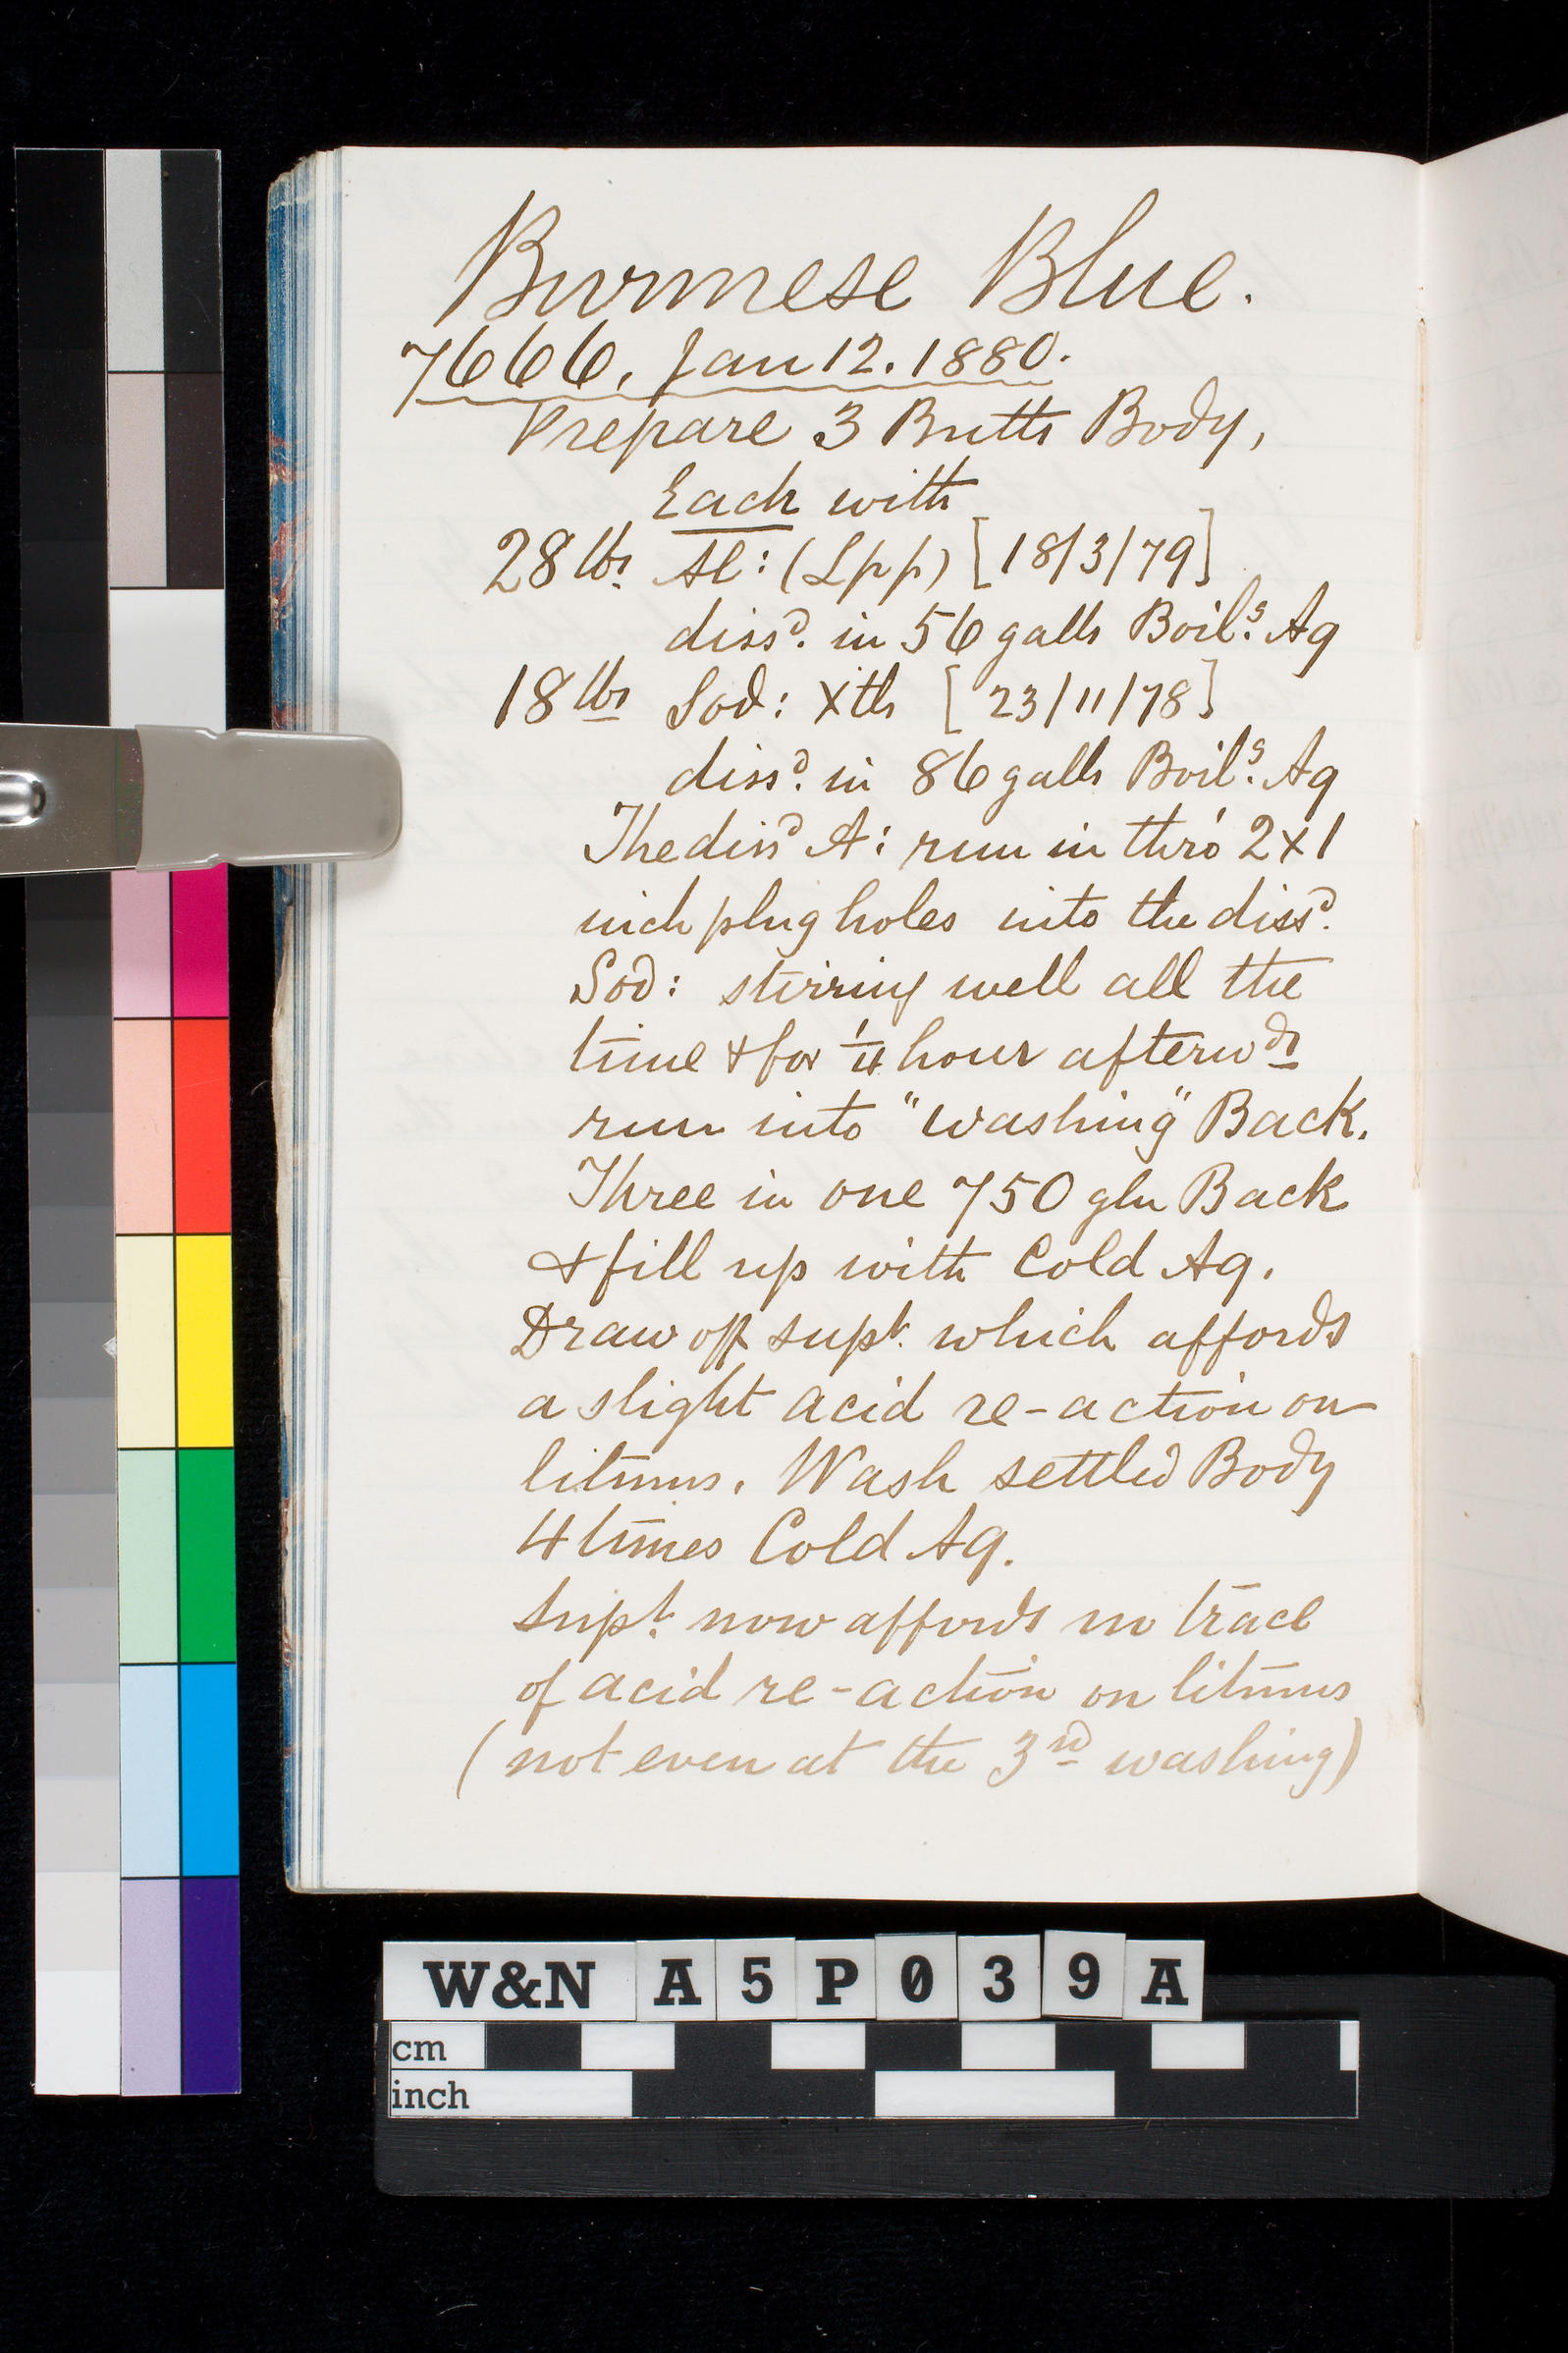 Burmese Blue.
7666, Jan 12. 1880.
Prepare 3 Butts Body,
Each with
28 lbs. Al: (Lpp) [18/3/79]
dissd. in 56 galls Boilg. Aq
18 lbs Sod: Xtls [23/11/78]
dissd. in 86 galls Boilg. Aq
The dissd A: run in thro' 2 x 1
inch plug holes into the dissd.
Sod: stirring well all the
time & for 1/4 hour afterwds
run into "washing" Back.
Three in one 750 gln Back
& fill up with Cold Aq.
Draw off supt. which affords
a slight acid re-action on
litmus. Wash settled Body
4 times Cold Aq.
Supt. now affords no trace
of acid re-action on litmus
(not even at the 3rd washing)
W&N A5P039A
cm
inch